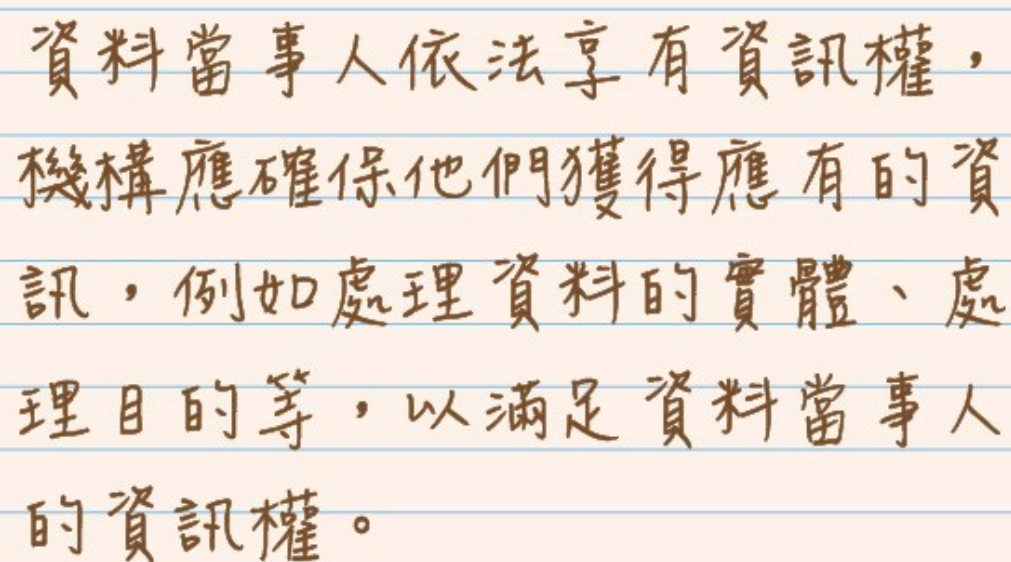 資料當事人依法享有資訊權，
機構應確保他們獲得應有的資
訊，例如處理資料的實體、處
理目的等，以滿足資料當事人
的資訊權。